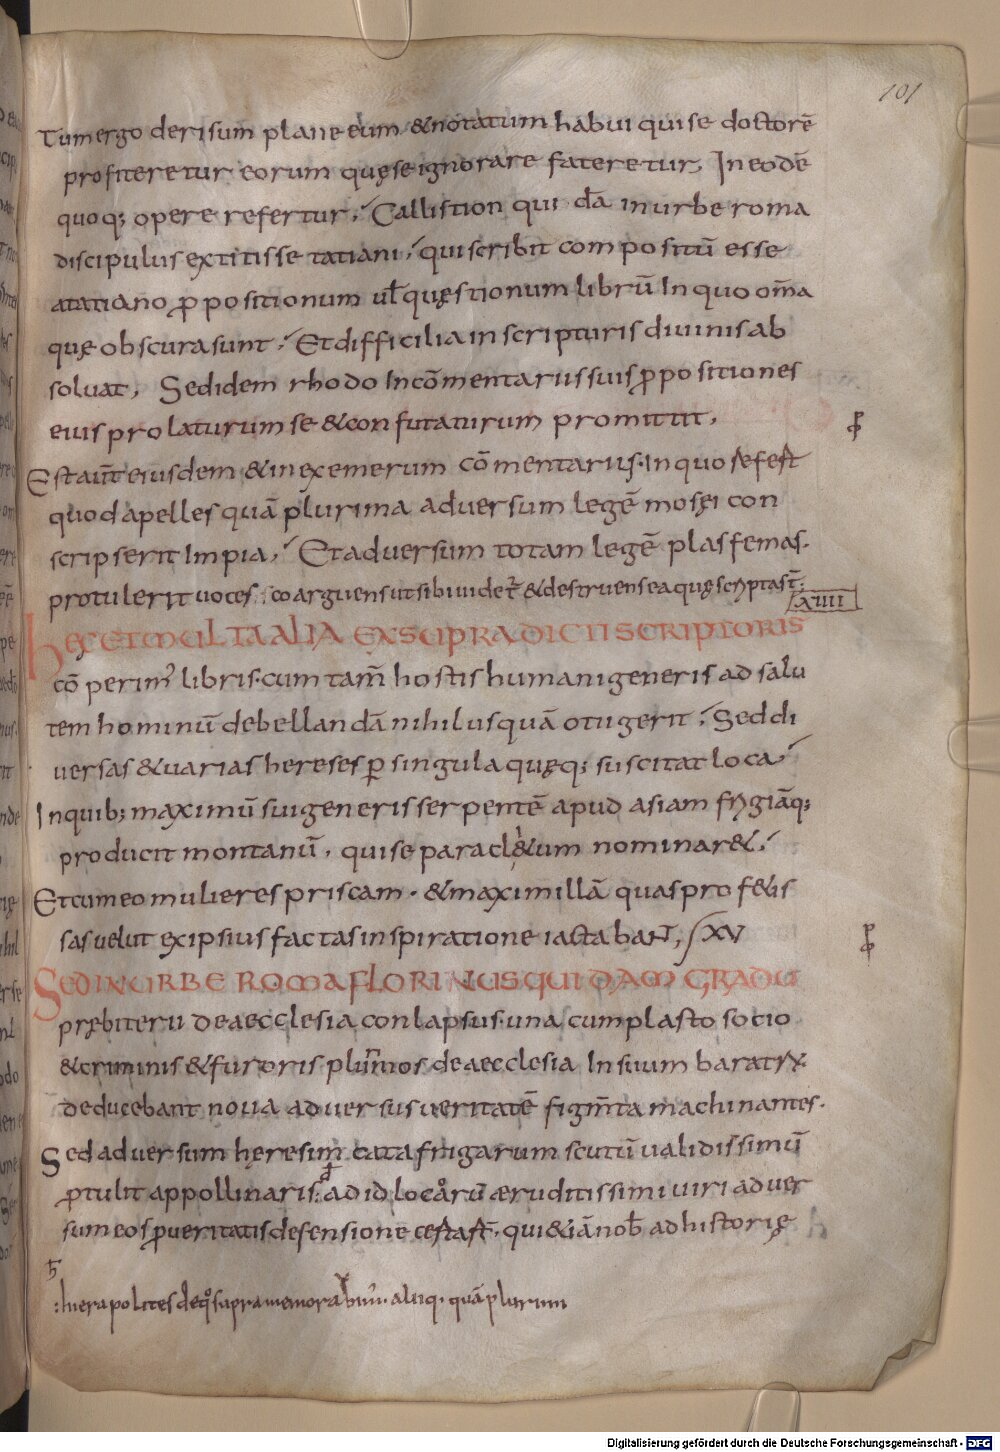 101
Tum ergo derisum plane eum &notatum habui qui se doctorē
profiteretur eorum quę se ignorare fateretur, In eodē
quoq; opere refertur, Callistion qui dā in urbe roma
discipulus extitisse tatiani, qui scribit compositū esse
a tatiano ꝓpositionum ul̄ quęstionum librū In quo om̄a
quę obscura sunt, Et difficilia in scripturis diuinis ab
soluat, Sed idem rhodo In cōmentariis suis ꝓpositiones
eius prolaturum se &confutaturum promittit,
Est aut̄ eiusdem &in exemerum cōmentarius. in quo
quod apelles quā plurima aduersum legē mosęi con
scripserit Impia, Et aduersum totam legē plasfemas.
protulerit uoces, coarguens ut sibi uidet̄ &destruens ea quę
XIIII
hęc et multa alia ex supradicti scriptoris
cōperim' libris. cum tam̄ hostis humani generis ad salu
tem hominū debellandā nihil usquā otii gerit, Sed di
uersas &uarias hereses ꝑ singula quęq; suscitat loca,
Inquib; maximū sui generis serpentē apud asiam frigiāq;
producit montanū, qui se paracl&um nominar&,
Et cum eo mulieres priscam. &maximillā quas prof&is
sas uelut ex ipsius factas inspiratione iactabant, XV
Sed in urbe roma florinus quidam gradu
prębiterii de aecclesia conlapsus. una cum plasto socio
&criminis &furoris. plurimos de aecclesia In suum baratrū
deducebant noua aduersus ueritatē figm̄ta machinantes.
Sed aduersum heresim catafrigarum scutū ualidissimū
ꝓtulit appollinaris: ad id locorū æruditissimi uiri aduer
sum eos ꝓ ueritatis defensione qui&iā nob̄ ad historię
:hierapolites de quo supra memorabim'. aliiq. quā plurum